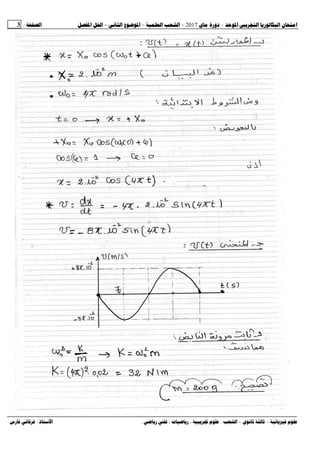 امتحان البكالوريا التجريبي الموحد - دورة ماي 2017 - الشعب العلمية - الموضوع الثاني - الحل المفصل الصفحة 3
ب- المعادلتين x(t) ، v(t) :
* x = X₀ cos(ω₀t + φ)
• X₀ = 2.10⁻² m (من البيان)
• ω₀ = 4π rad/s
ومن الشروط الابتدائية :
t = 0 → x = +X₀
بالتعويض :
+X₀ = X₀ cos(ω₀(0) + φ)
cos(φ) = 1 → φ = 0
إذن
x = 2.10⁻² cos(4πt) .
* v = dx/dt = - 4π . 2.10⁻² sin(4πt)
v = - 8π.10⁻² sin(4πt)
جـ- المنحنى v(t) :
v(m/s)
+8π.10⁻²
t(s)
T₀
-8π.10⁻²
د- ثابت مرونة النابض :
مما سبق :
ω₀² = K/m → K = ω₀² m
K = (4π)² . 0,02 = 32 N/m
m = 200g
علوم فيزيائية - ثالثة ثانوي - الشعب : علوم تجريبية ، رياضيات ، تقني رياضي الأستاذ : فرقاني فارس